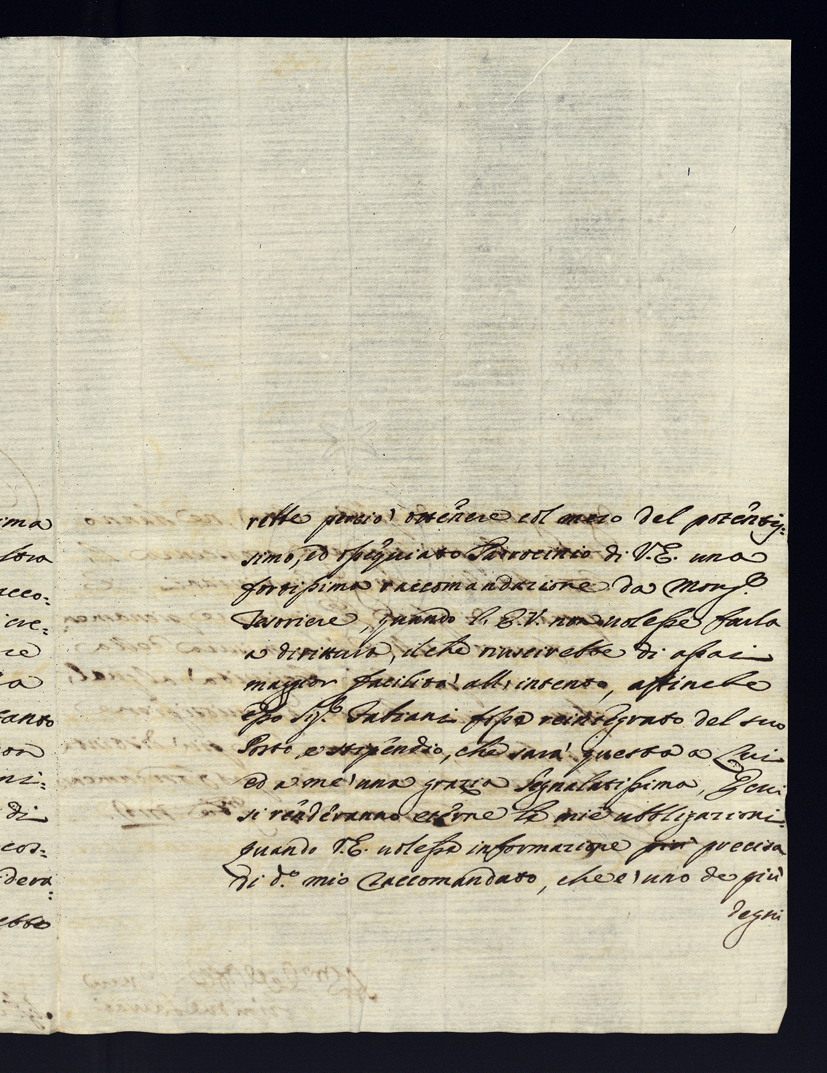 ima
stra
acco=
icie=
re
a
tanto
ni=
di
cos=
dera=
ebbe
rebbe perciò ottenere col mezo del potentis=
simo, ed ossequiato Patrocinio di V.E. una
fortissima raccomandazione da Mons.r
quando l'E.V. non volesse farla
a dirittura, il che riuscirebbe di assai
maggior facilità all'intento, affinche
esso Sig.r fosse reintegrato del suo
Posto, e stipendio, che sarà questa a Lui
ed a me una grazia segnalatissima, e
si renderanno eterne le mie obbligazioni.
quando V.E. volesse informazione più precisa
di d.o mio Raccomandato, che è uno de più
degni